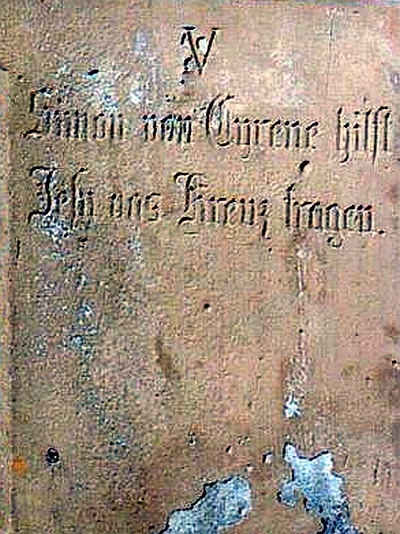 V
Simon von Cyrene hilft
Jesu das Kreuz tragen.